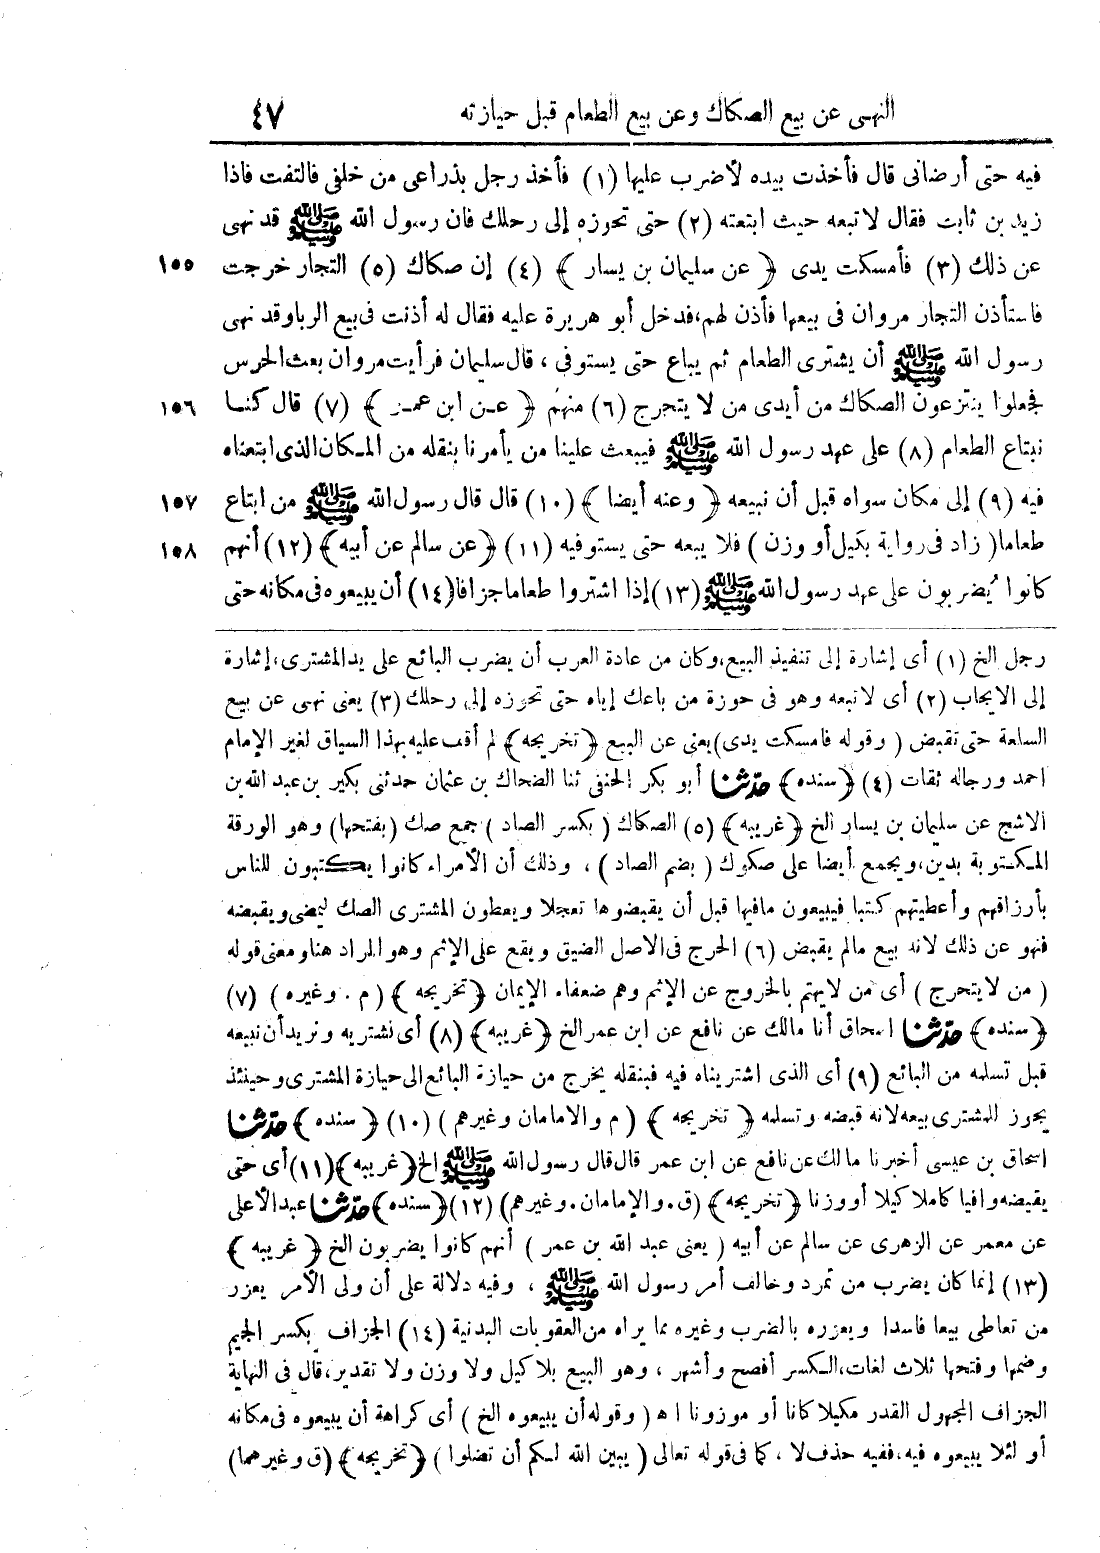 النهى عن بيع الصكاك وعن بيع الطعام قبل حيازته ٤٧
فيه حتى أرضانى قال فأخذت بيده لأضرب عليها (١) فأخذ رجل بذراعى من خلفى فالتفت فاذا
زيد بن ثابت فقال لا تبعه حيث ابتعته (٢) حتى تحوزه إلى رحلك فان رسول الله ﷺ قد نهى
عن ذلك (٣) فأمسكت يدى ﴿ عن سليمان بن يسار ﴾ (٤) إن صكاك (٥) التجار خرجت ١٥٥
فاستأذن التجار مروان فى بيعها فأذن لهم، فدخل أبو هريرة عليه فقال له أذنت فى بيع الربا وقد نهى
رسول الله ﷺ أن يشترى الطعام ثم يباع حتى يستوفى ، قال سليمان فرأيت مروان بعث الحرس
فجعلوا ينتزعون الصكاك من أيدى من لا يتحرج (٦) منهم ﴿ عن ابن عمر ﴾ (٧) قال كنا ١٥٦
نبتاع الطعام (٨) على عهد رسول الله ﷺ فيبعث علينا من يأمرنا بنقله من المكان الذى ابتعناه
فيه (٩) إلى مكان سواه قبل أن نبيعه ﴿ وعنه أيضا ﴾ (١٠) قال قال رسول الله ﷺ من ابتاع ١٥٧
طعاما (زاد فى رواية بكيل أو وزن) فلا يبعه حتى يستوفيه (١١) ﴿عن سالم عن أبيه﴾ (١٢) أنهم ١٥٨
كانوا يُضربون على عهد رسول الله ﷺ (١٣) إذا اشتروا طعاما جزافا (١٤) أن يبيعوه فى مكانه حتى
رجل الخ (١) أى إشارة إلى تنفيذ البيع، وكان من عادة العرب أن يضرب البائع على يد المشترى، إشارة
إلى الايجاب (٢) أى لا تبعه وهو فى حوزة من باعك إياه حتى تحوزه إلى رحلك (٣) يعنى نهى عن بيع
السلعة حتى تقبض (وقوله فامسكت يدى) يعنى عن البيع ﴿تخريجه﴾ لم أقف عليه بهذا السياق لغير الإمام
احمد ورجاله ثقات (٤) ﴿سنده﴾ حدّثنا أبو بكر الحنفى ثنا الضحاك بن عثمان حدثنى بكير بن عبد الله بن
الاشج عن سليمان بن يسار الخ ﴿غريبه﴾ (٥) الصكاك (بكسر الصاد) جمع صك (بفتحها) وهو الورقة
المكتوبة بدين، ويجمع أيضا على صكوك (بضم الصاد) ، وذلك أن الأمراء كانوا يكتبون للناس
بأرزاقهم وأعطيتهم كتبا فيبيعون مافيها قبل أن يقبضوها تعجلا ويعطون المشترى الصك ليمضى ويقبضه
فنهو عن ذلك لانه بيع مالم يقبض (٦) الحرج فى الاصل الضيق ويقع على الإثم وهو المراد هنا ومعنى قوله
(من لا يتحرج) أى من لا يهتم بالخروج عن الإثم وهم ضعفاء الإيمان ﴿تخريجه﴾ (م . وغيره) (٧)
﴿سنده﴾ حدّثنا اسحاق أنا مالك عن نافع عن ابن عمر الخ ﴿غريبه﴾ (٨) أى نشتريه ونريد أن نبيعه
قبل تسلمه من البائع (٩) أى الذى اشتريناه فيه فبنقله يخرج من حيازة البائع إلى حيازة المشترى وحينئذ
يجوز للمشترى بيعه لانه قبضه وتسلمه ﴿تخريجه﴾ (م والامامان وغيرهم) (١٠) ﴿سنده﴾ حدّثنا
اسحاق بن عيسى أخبرنا مالك عن نافع عن ابن عمر قال قال رسول الله ﷺ الخ ﴿غريبه﴾ (١١) أى حتى
يقبضه وافيا كاملا كيلا أو وزنا ﴿تخريجه﴾ (ق . والإمامان . وغيرهم) (١٢) ﴿سنده﴾ حدّثنا عبد الأعلى
عن معمر عن الزهرى عن سالم عن أبيه (يعنى عبد الله بن عمر) أنهم كانوا يضربون الخ ﴿غريبه﴾
(١٣) إنما كان يضرب من تمرد وخالف أمر رسول الله ﷺ ، وفيه دلالة على أن ولى الأمر يعزر
من تعاطى بيعا فاسدا ويعزره بالضرب وغيره مما يراه من العقوبات البدنية (١٤) الجزاف بكسر الجيم
وضمها وفتحها ثلاث لغات، الكسر أفصح وأشهر ، وهو البيع بلا كيل ولا وزن ولا تقدير، قال فى النهاية
الجزاف المجهول القدر مكيلا كانا أو موزونا اه (وقوله أن يبيعوه الخ) أى كراهة أن يبيعوه فى مكانه
أو لئلا يبيعوه فيه، ففيه حذف لا ، كما فى قوله تعالى (يبين الله لكم أن تضلوا) ﴿تخريجه﴾ (ق وغيرهما)